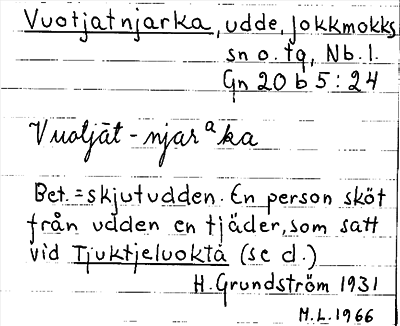 Vuotjatnjarka, udde, Jokkmokks
sn o. tg, Nb. l.
Gn 20 b 5 : 24
Vuotjāt - njarᵃka
Bet. = skjutudden. En person sköt
från udden en tjäder, som satt
vid Tjuktjeluoktå (se d.)
H. Grundström 1931
M.L. 1966